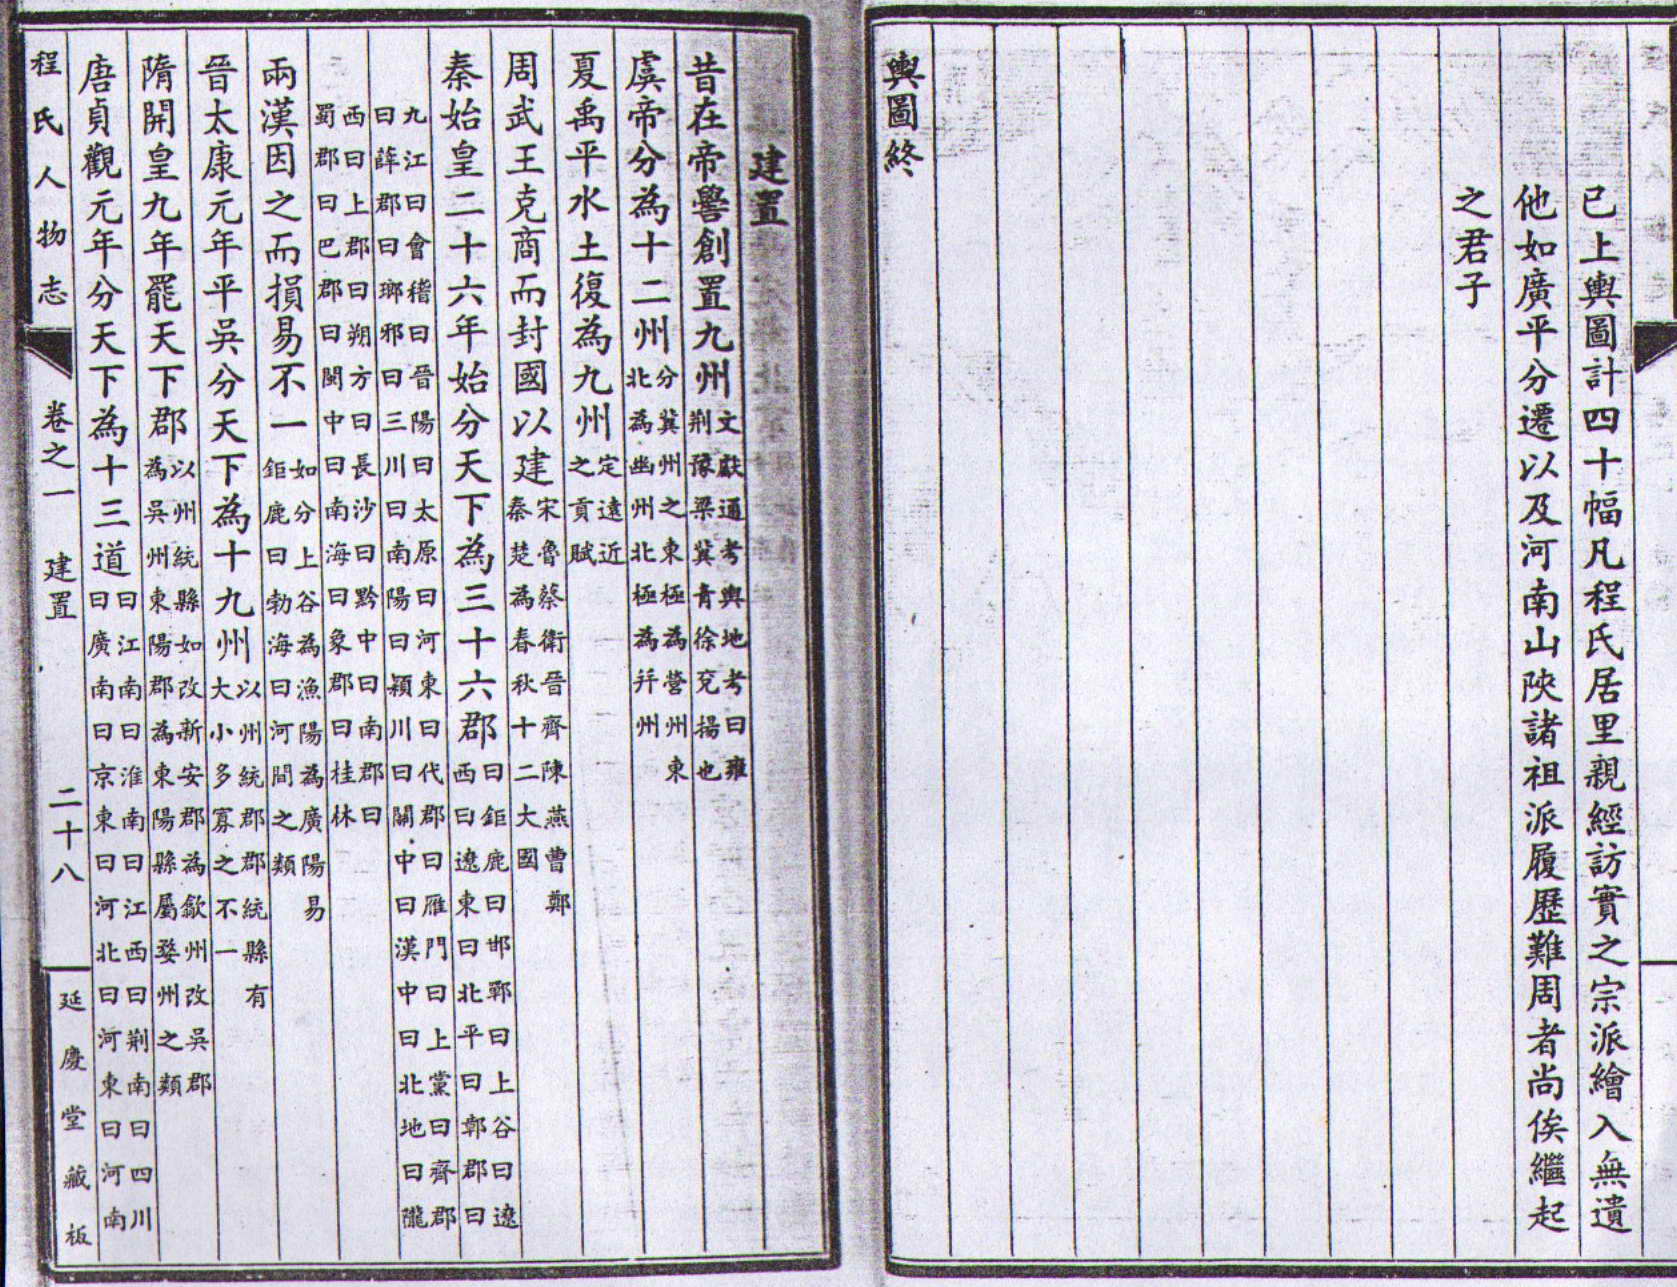 已上輿圖計四十幅凡程氏居里親經訪實之宗派繪入無遺
他如廣平分遷以及河南山陝諸祖派履歷難周者尚俟繼起
之君子
輿圖終
建置
昔在帝嚳創置九州文獻通考輿地考曰雍荆豫梁冀青徐兗揚也
虞帝分為十二州分冀州之東極為營州東北為幽州北極為幷州
夏禹平水土復為九州定遠近之貢賦
周武王克商而封國以建宋魯蔡衛晉齊陳燕曹鄭秦楚為春秋十二大國
秦始皇二十六年始分天下為三十六郡曰鉅鹿曰邯鄲曰上谷曰遼西曰遼東曰北平曰鄣郡曰
九江曰會稽曰晉陽曰太原曰河東曰代郡曰雁門曰上黨曰齊郡曰薛郡曰瑯邪曰三川曰南陽曰潁川曰關中曰漢中曰北地曰隴
西曰上郡曰朔方曰長沙曰黔中曰南郡曰蜀郡曰巴郡曰閩中曰南海曰象郡曰桂林
兩漢因之而損易不一如分上谷為漁陽為廣陽易鉅鹿曰勃海曰河間之類
晉太康元年平吳分天下為十九州以州統郡郡統縣有大小多寡之不一
隋開皇九年罷天下郡以州統縣如改新安郡為歙州改吳郡為吳州東陽郡為東陽縣屬婺州之類
唐貞觀元年分天下為十三道曰江南曰淮南曰江西曰荆南曰四川曰廣南曰京東曰河北曰河東曰河南
程氏人物志 卷之一 建置 二十八 延慶堂藏板